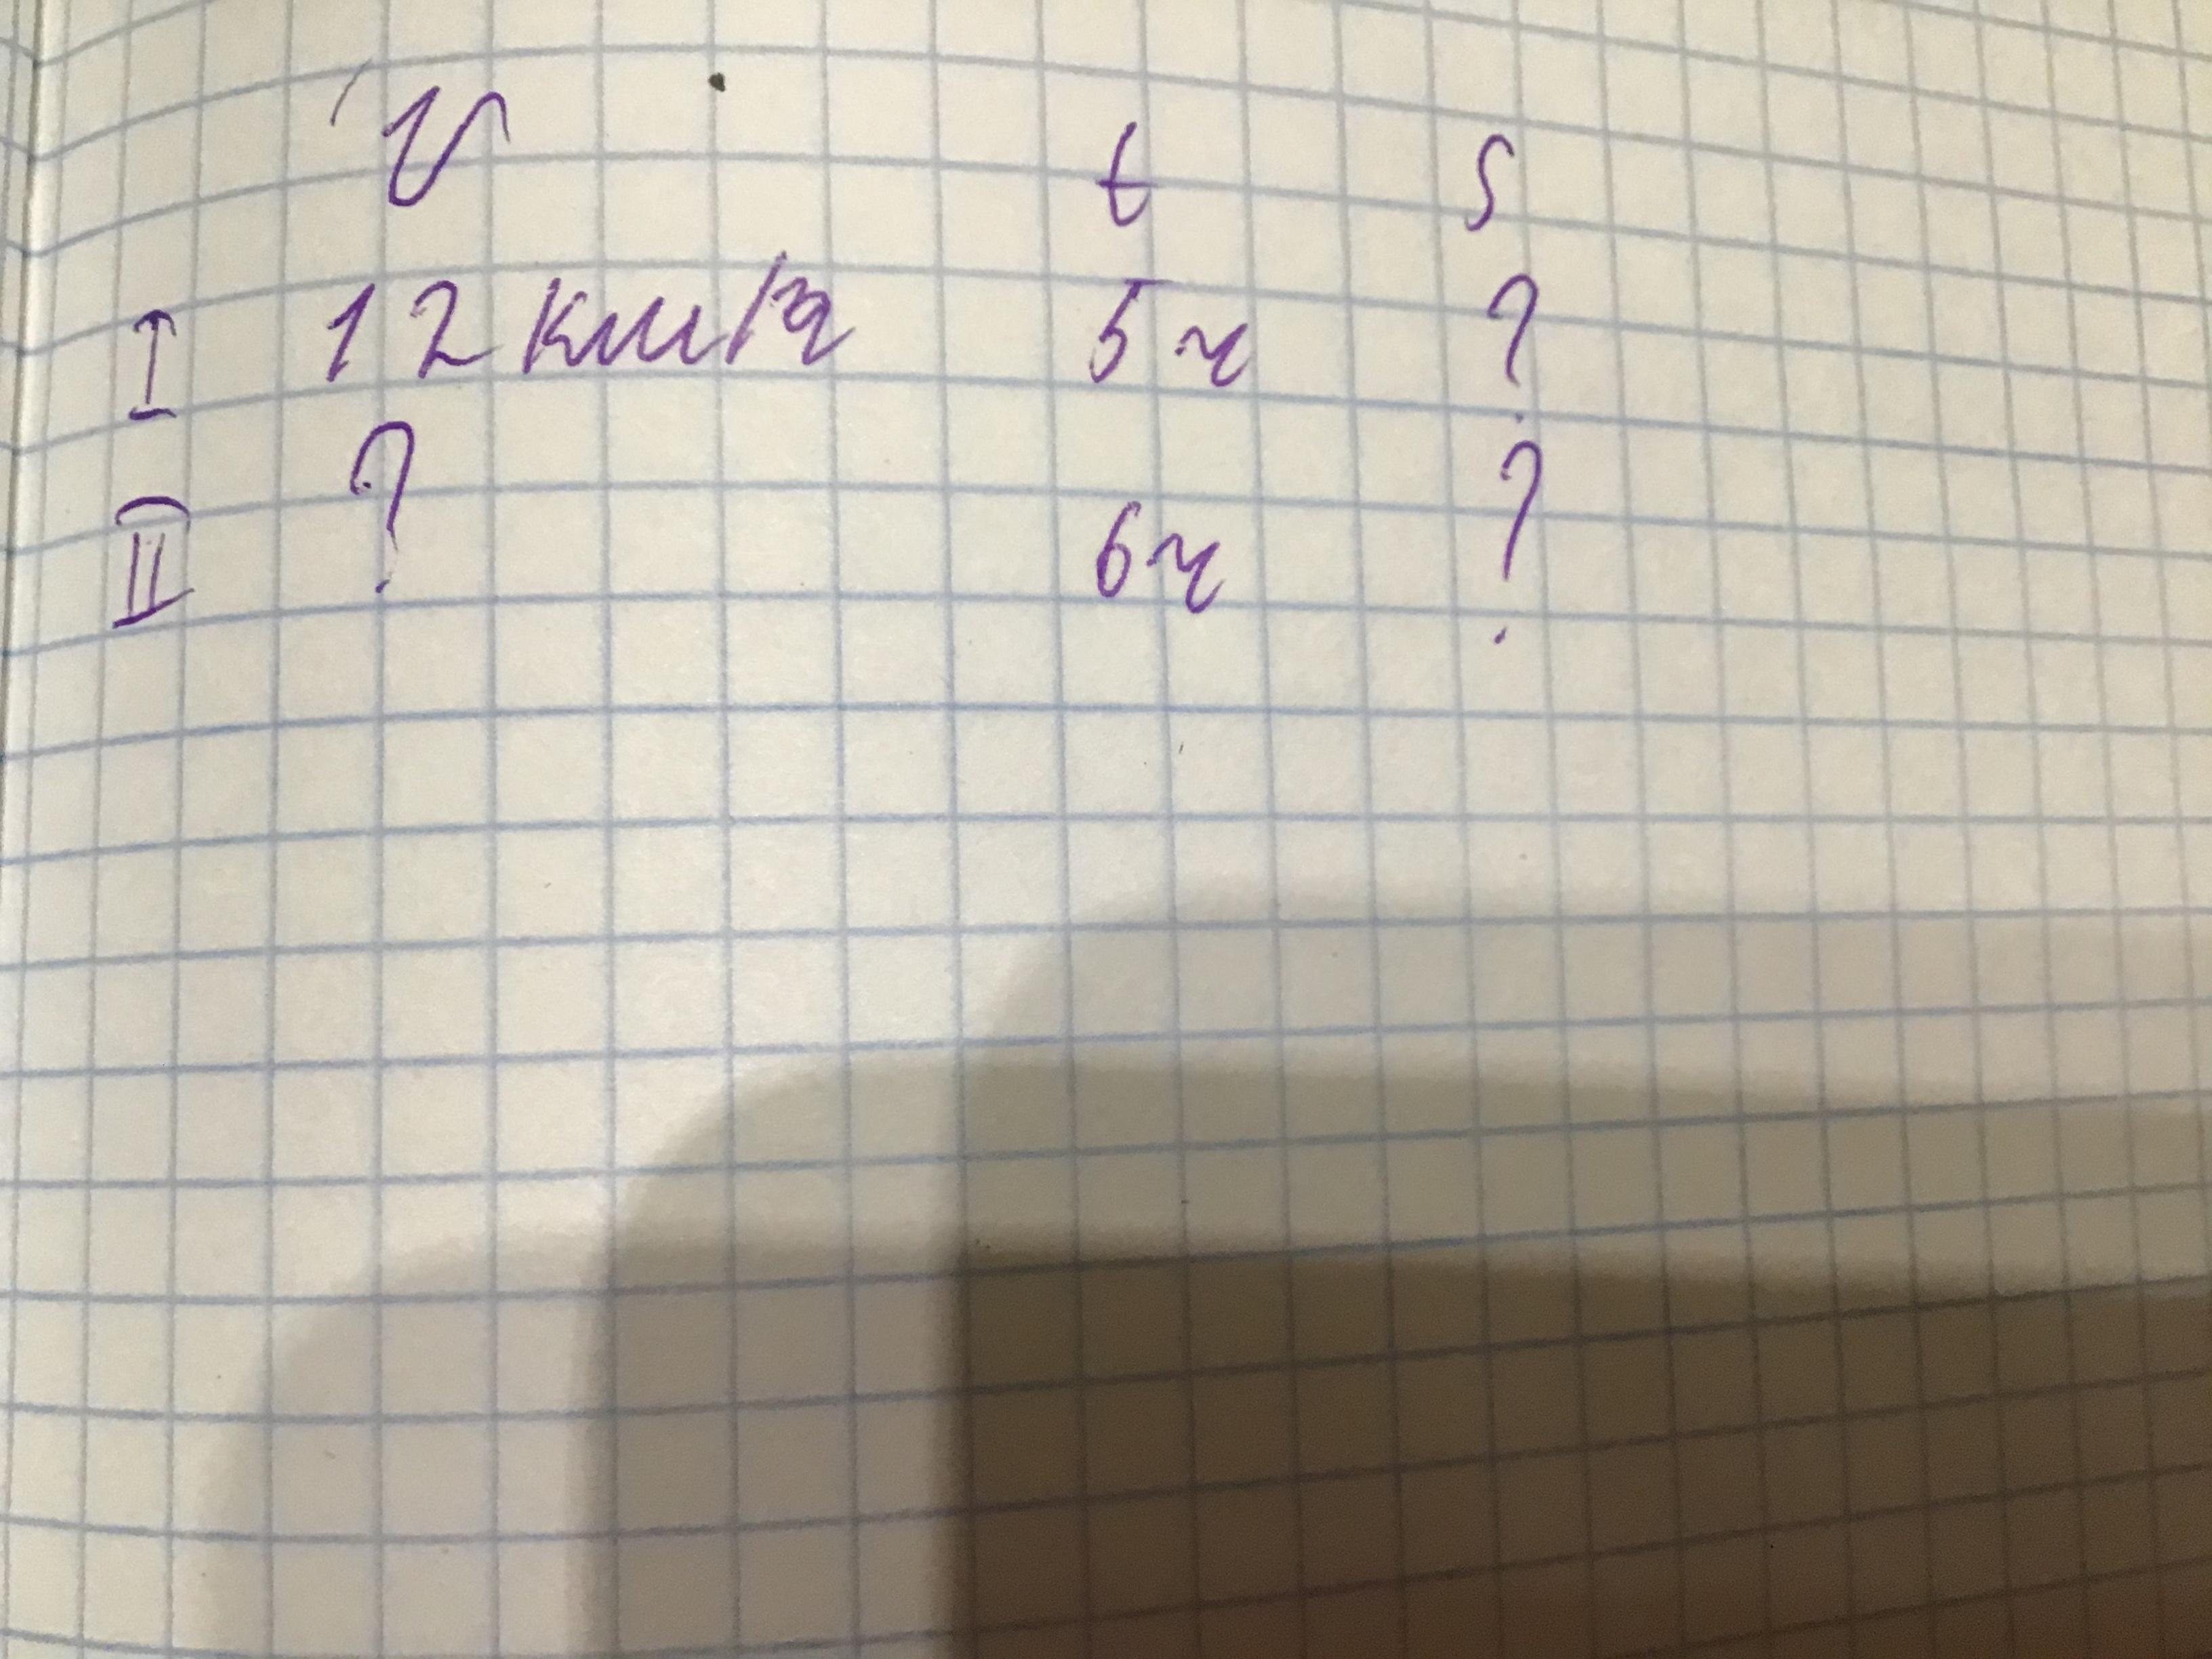 V t S
I 12 км/ч 5 ч ?
II ? 6 ч ?